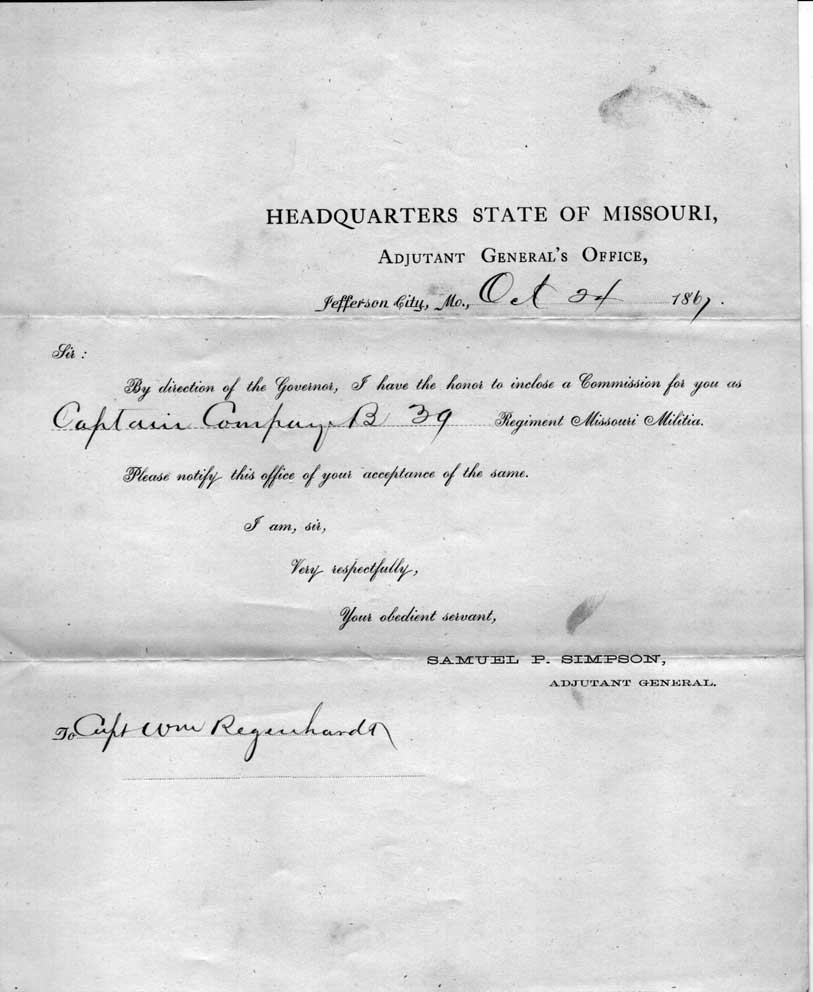 HEADQUARTERS STATE OF MISSOURI,
ADJUTANT GENERAL'S OFFICE,
Jefferson City, Mo., Oct 24 1867.
Sir:
By direction of the Governor, I have the honor to inclose a Commission for you as
Captain Company B 39 Regiment Missouri Militia.
Please notify this office of your acceptance of the same.
I am, sir,
Very respectfully,
Your obedient servant,
SAMUEL P. SIMPSON,
ADJUTANT GENERAL.
To Capt Wm Regenhardt